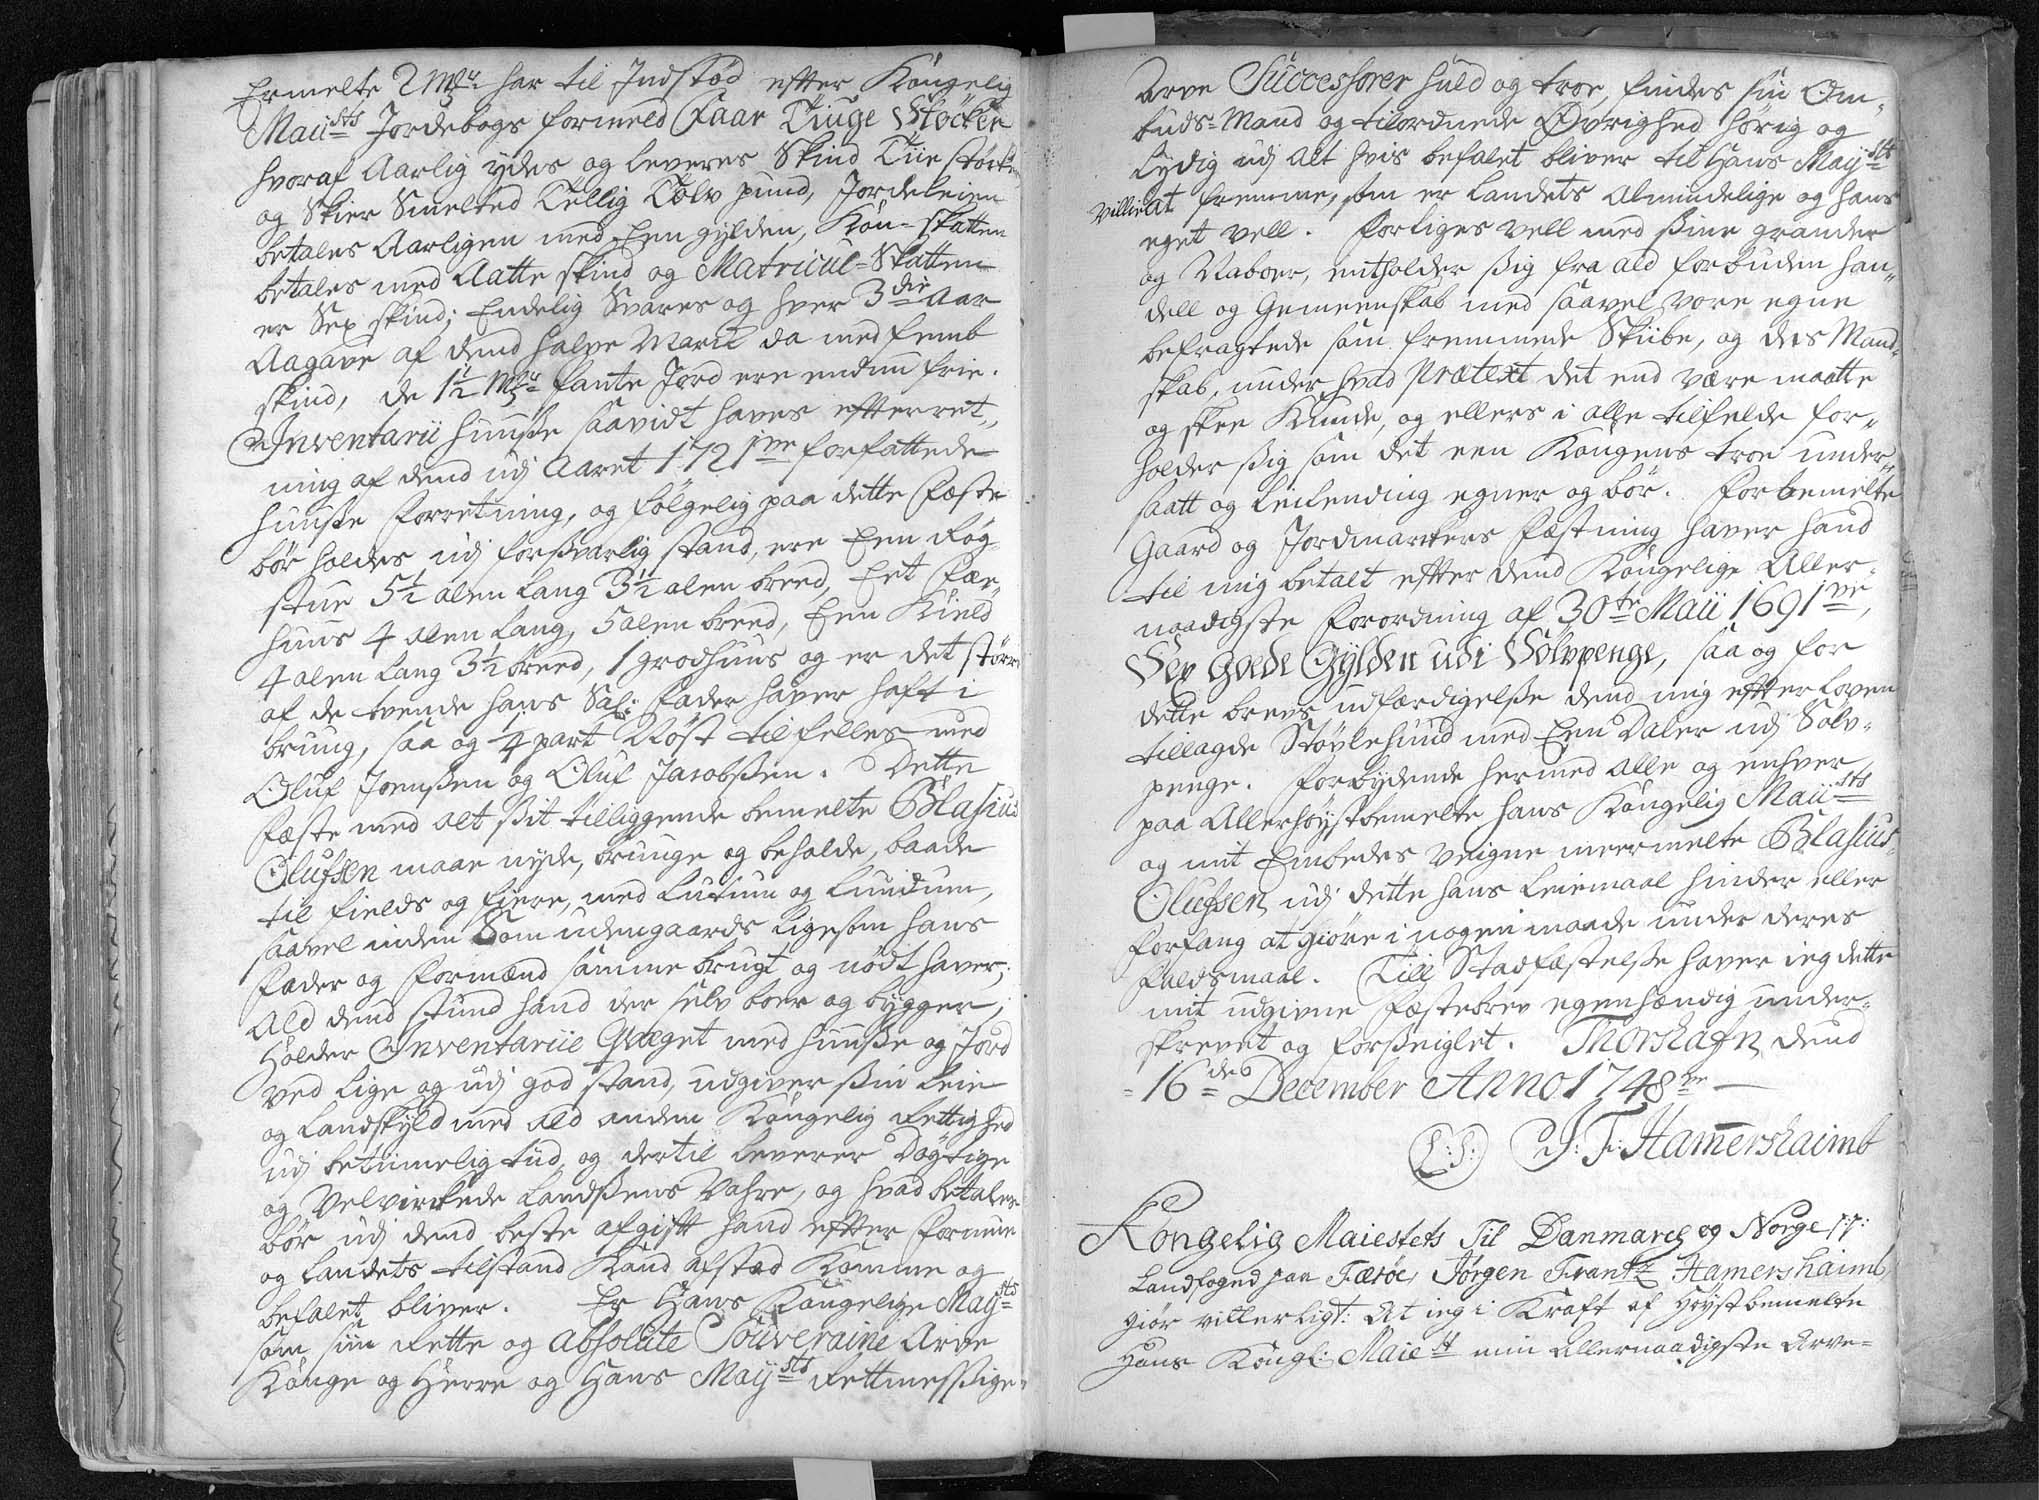 Ermelte 2 Mkr: har til Indstød efter Kongelig
Maii^sts Jordebogs formeld Faar Tiuge Støcker
hvoraf Aarlig ydes og leveres Skind Tiie støcker
og Skier Smelted Tellig Tolv pund, Jordeleien
betales Aarligen med Een gylden, Kön=skatten
betales med Aatte skind og Matricul=Skatten
er Sex skind; Endelig Svares og hver 3^die Aar
Aagave af dend halve Marck da med femb
skind, de 1½ Mkr fante Jord ere endnu frie.
Inventarii Huusse saavidt haves efterret„
ning af dend udj Aaret 1721^ve forfattede
Huusse Forretning, og følgelig paa dette Fæste
bør holdes udj forsvarlig stand, ere Een Røg
stue 5½ alen lang 3½ alen breed, Eet Fær„
huus 4 alen lang, 5 alen breed, Een Kield
4 alen lang 3½ breed, 1 grodhuus og er det større
af de tvende hans Sal: Fader haver haft i
brug, saa og ¼ part Røst tilfelles med
Oluf Joenssen og Oluf Jacobssen. Dette
Fæste med alt sit tilliggende bemelte Blasius
Olufsen maae nyde, bruge og beholde, baade
til fields og fiere, med lutum og lundum,
saavel inden Som udengaards ligesom hans
Fader og Formænd samme brugt og nødt haver;
Ald dend stund hand der selv boer og bygger,
Holder Inventariie Qvæget med Huusse og Jord
ved lige og udj god stand, udgiver sin Leie
og Landskyld med ald anden Kongelig Rettighed
udj betiimelig tiid, og dertil leverer Døgtige
og Velvirkede Landssens Vahre, og hvad betales
bør udj dend beste afgift hand efter Formue
og Landets tilstand Kand afsted Komme og
befalet bliver. Er Hans Kongelige May^sts
som siin Rette og absolute Souveraine Arve
Konge og Herre og Hans May^sts Rettmessige
Arve Successorer huld og troe, findes sin Om„
buds=Mand og tilordnede Øvrighed hörig og
lydig udj alt hvis befalet bliver til Hans May^sts
villie at fremme, som er Landets Almindelige og hans
eget vell. Forliges vell med sine grander
og Naboer, entholder sig fra ald forbuden han„
dell og Gemeenskab med saavel vore egne
befragtede som fremmede Skiibe, og des Mand„
skab, under hvad Prætext det end være maatte
og skee Kunde, og ellers i alle tilfelde for„
holder sig som det een Kongens troe under„
saatt og Leilending egner og bör. For bemelte
Gaard og Jordmarkers Fæstning haver hand
til mig betalt efter dend Kongelige Aller„
naadigste Forordning af 30^te Maii 1691^ve,
Sex Goede Gylden udi Sölvpenge, saa og for
dette brevs udfærdigelsse dend mig efter Loven
tillagde Støvlehuud med Een Daler udj Sölv„
penge. Forbydende hermed alle og enhver
paa Allerhøystbemelte Hans Kongelig Maii^sts
og mit Embedes veigne meermelte Blasius
Olufsen udj dette hans Leiemaal hinder eller
forfang at giöre i nogen maade under deres
Faldsmaal. Till Stadfæstelsse haver ieg dette
mit udgivne Fæstebrev egenhændig under„
skrevet og forseiglet. Thorshafn dend
=16^de December Anno 1748^ve —
(L:S:) J: F: Hamershaimb
Kongelig Maiestets Til Danmarck og Norge p:p:
Landfoged paa Færöe, Jørgen Frantz Hamershaimb
giör vitterligt: At ieg i Kraft af Høystbemelte
Hans Kongl: Maie^st min Allernaadigste Arve=